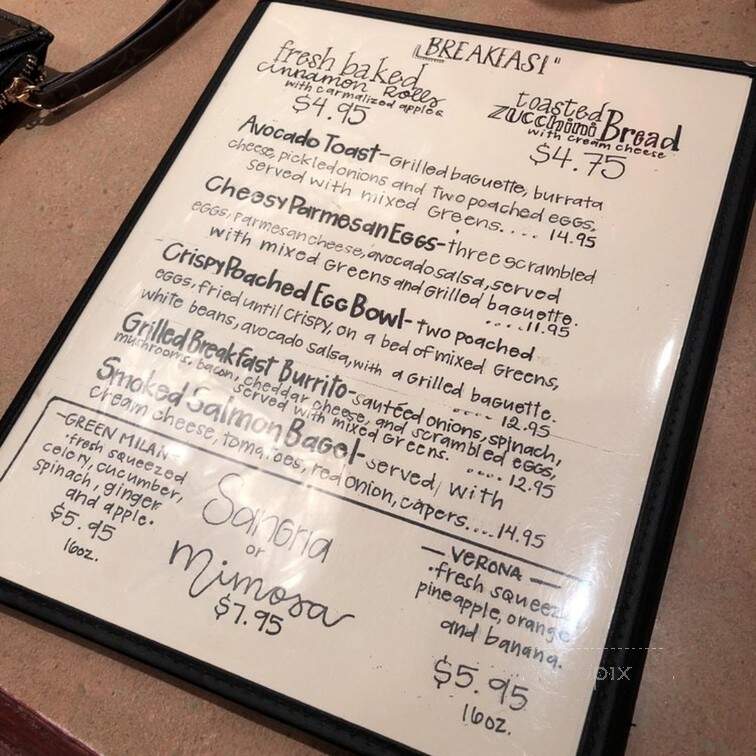 BREAKFAST"
fresh baked
cinnamon Rolls
with carmalized apples
$4.95
toasted
zucchini Bread
with cream cheese
$4.75
Avocado Toast-Grilled baguette, burrata
cheese, pickled onions and two poached eggs,
served with mixed Greens.... 14.95
Cheesy Parmesan Eggs-three scrambled
eggs, parmesan cheese, avocado salsa, served
with mixed Greens and Grilled baguette.
....11.95
Crispy Poached Egg Bowl-two poached
eggs, fried until crispy, on a bed of mixed Greens,
white beans, avocado salsa, with a Grilled baguette.
.... 12.95
Grilled Breakfast Burrito-sautéed onions, spinach,
mushrooms, bacon, cheddar cheese, and scrambled eggs,
served with mixed Greens. .... 12.95
Smoked Salmon Bagel-served with
cream cheese, tomatoes, red onion, capers....14.95
-GREEN MILAN-
•fresh squeezed
celery, cucumber,
spinach, ginger
and apple.
$5.95
16oz.
Sangria
or
mimosa
$7.95
— VERONA —
•fresh squeezed
pineapple, orange
and banana.
$5.95
16oz.